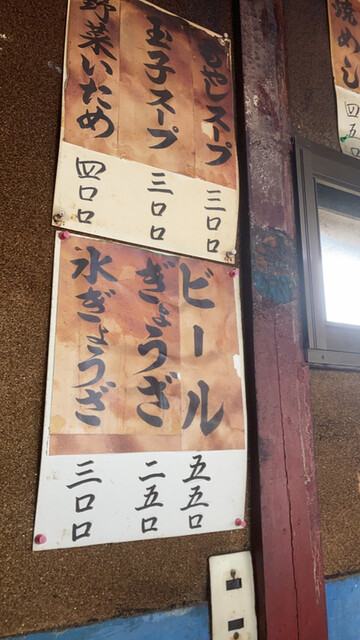 もやしスープ 三〇〇
玉子スープ 三〇〇
野菜いため 四〇〇
ビール 五五〇
ぎょうざ 二五〇
水ぎょうざ 三〇〇
焼めし 四五〇